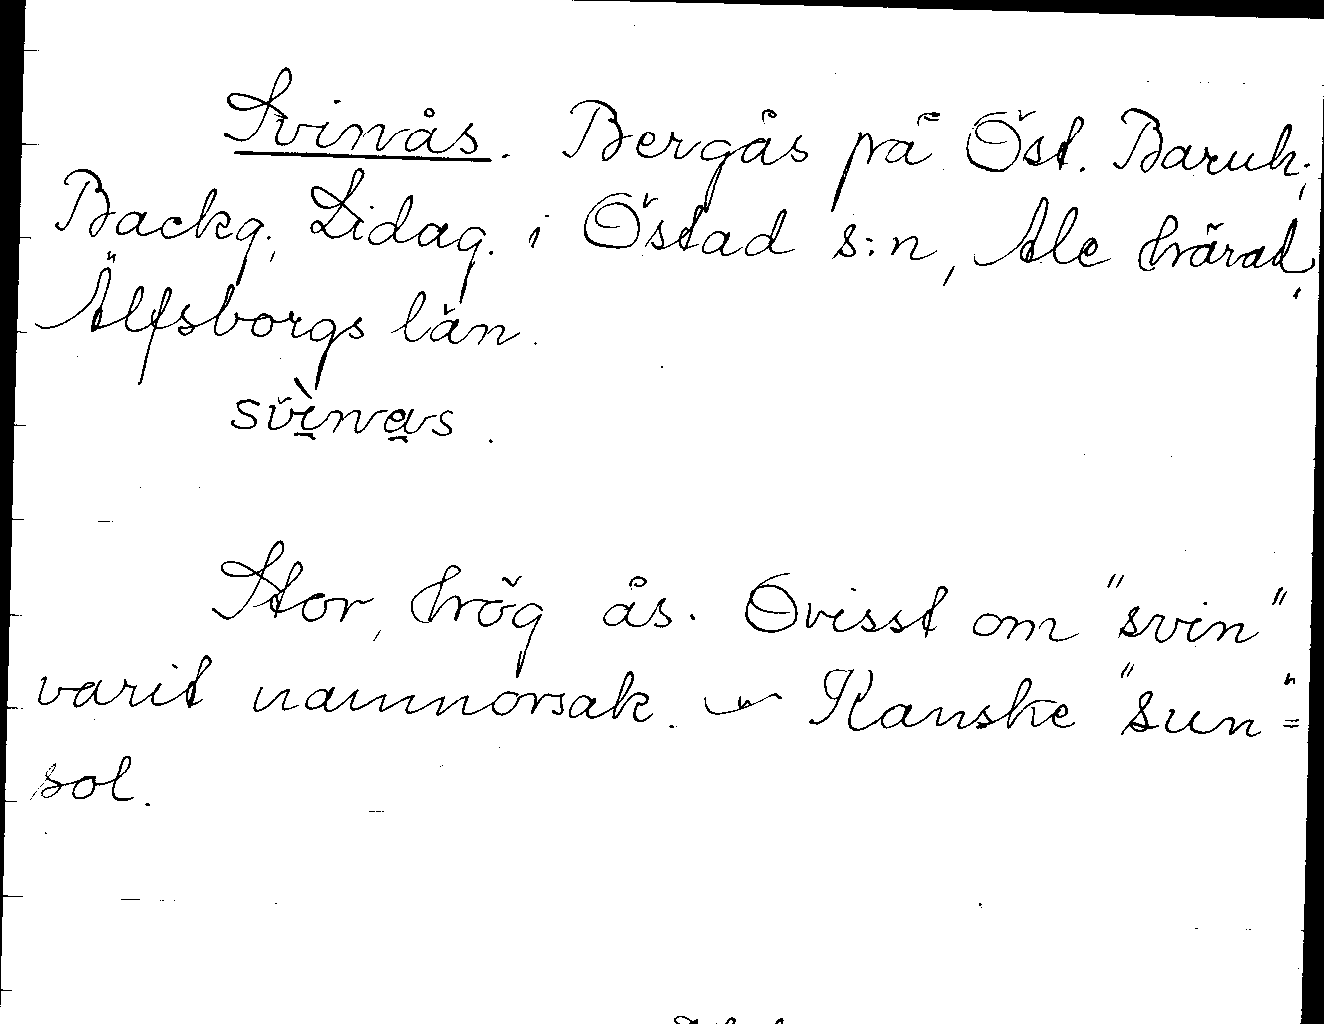 Svinås. Bergås på Öst. Baruk;
Backg. Lidag. i Östad s:n, Ale härad,
Älfsborgs län.
svìnas.
Stor, hög ås. Ovisst om "svin"
varit namnorsak. – Kanske "sun" =
sol.